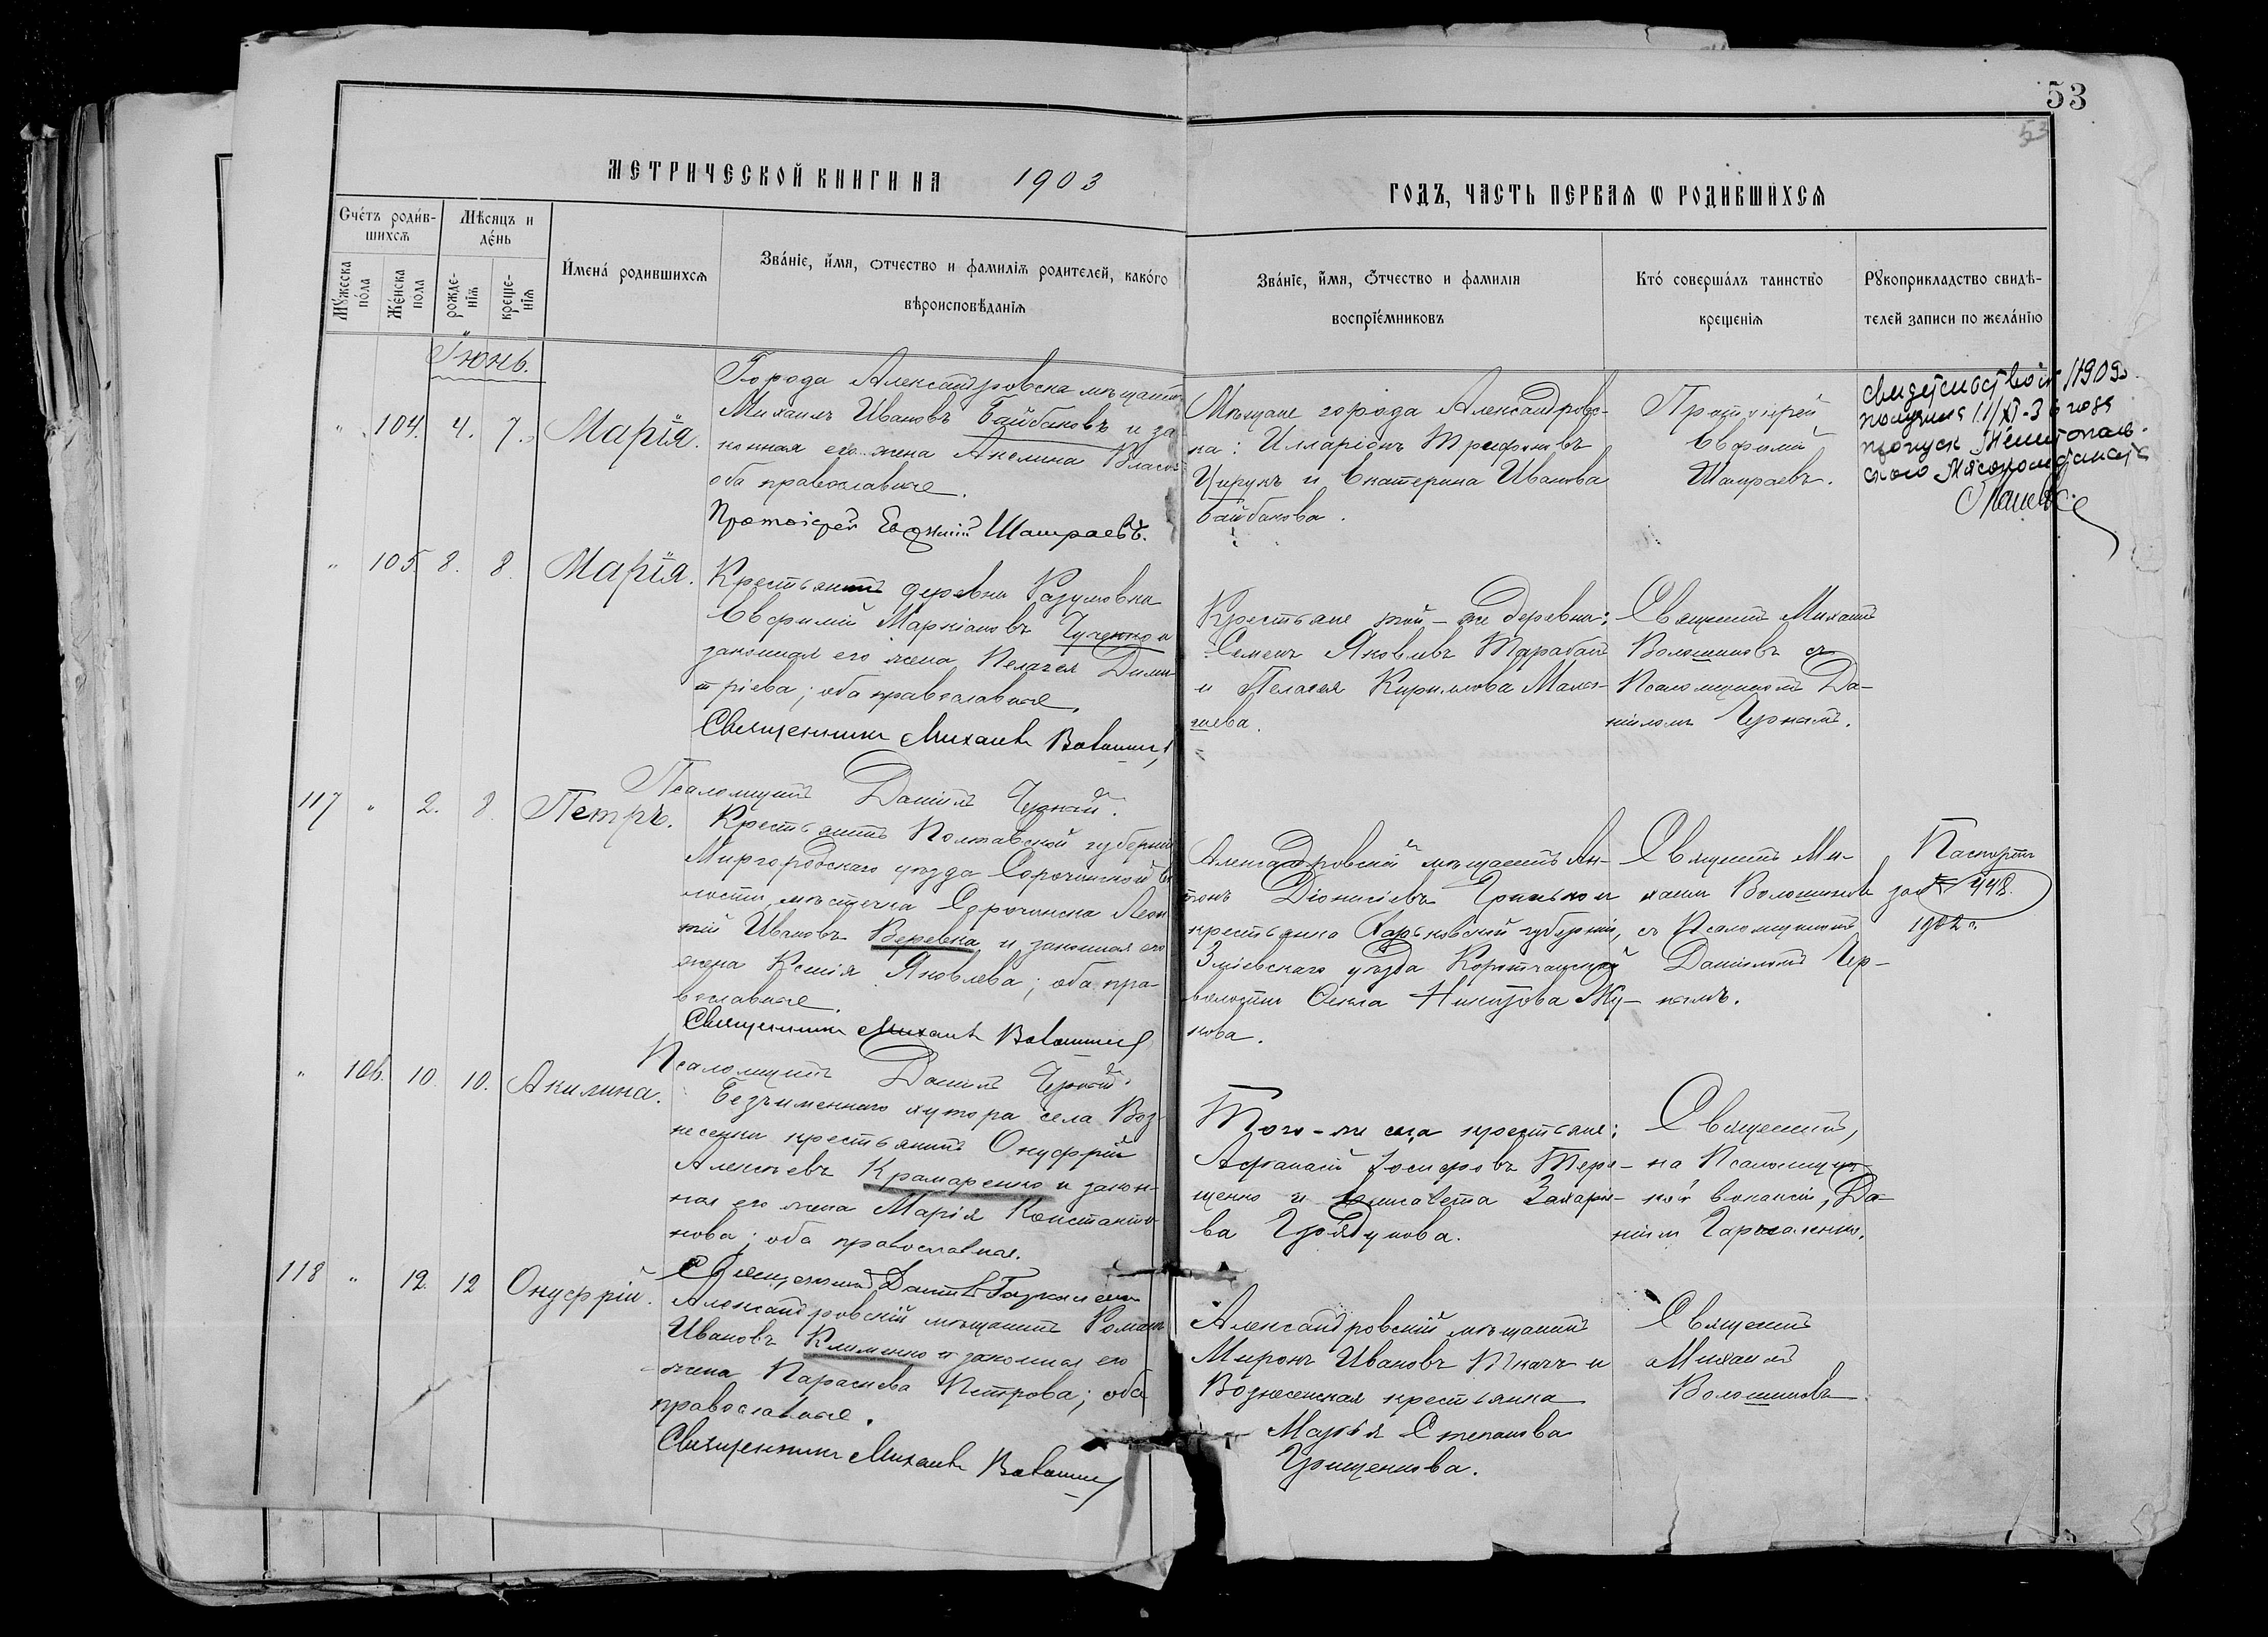 53
53
МЕТРИЧЕСКОЙ КНИГИ НА 1903
ГОДЪ, ЧАСТЬ ПЕРВАЯ Ѡ РОДИВШИХСЯ
Счетъ родившихся
Мужеска пола
Женска пола
Мѣсяцъ и день
рожденія
крещенія
Имена родившихся
Званіе, имя, отчество и фамилія родителей, какого
вѣроисповѣданія
Званіе, имя, отчество и фамилія
воспріемниковъ
Кто совершалъ таинство
крещенія
Рукоприкладство свидѣ-
телей записи по желанію
Іюнь.
" 104. 4. 7. Марія.
Города Александровска мѣщанинъ
Михаилъ Ивановъ Байбаковъ и за
конная его жена Акелина Власова
оба православные.
Протоіерей Евѳимій Шамраевъ.
Мѣщане города Александровс-
ка: Илларіонъ Трифоновъ
Цирукъ и Екатерина Иванова
Байбакова.
Протоіерей
Евфимій
Шамраевъ.
1190
" 105. 8. 8. Марія.
Крестьянинъ деревни Разумовки
Евфимій Маркіановъ и
законная его жена Пелагея Дими
тріева; оба православные.
Священникъ Михаилъ Волошинов
Псаломщикъ Даніилъ Чорный.
Крестьяне той-же деревни:
Семенъ Яковлевъ Тарабан
и Пелагея Кириллова
Священникъ Михаилъ
Волошиновъ съ
Псаломщикомъ Да-
ніиломъ Чернымъ.
117 " 2. 8. Петръ.
Крестьянинъ Полтавской губерніи
Миргородскаго уѣзда Сорочинской во
лости, мѣстечка Сорочинска Леон
тій Ивановъ Веревка и законная его
жена Ксенія Яковлева; оба пра-
вославные.
Священникъ Михаилъ Волошинов
Псаломщикъ Даніилъ Чорный.
Александровскій мѣщанинъ Ан-
тонъ Діонисіевъ Гринько и
крестьянка Харьковской губерніи,
Зміевскаго уѣзда
волости Ѳекла Никитова Жу-
кова.
Священникъ Ми-
хаилъ Волошиновъ
съ Псаломщикомъ
Даніиломъ Чер-
нымъ.
Паспортъ
за № 448.
1902 г.
" 106. 10. 10. Акилина.
Безъименнаго хутора села Воз-
несенки крестьянинъ Онуфрій
Алексѣевъ Крамаренко и закон-
ная его жена Марія Константи
нова; оба православные.
Священникъ Даніилъ
Того-же села крестьяне:
Афанасій Іосифовъ Тере-
щенко и Елисавета Захарів-
ва
Священникъ,
на Псаломщиц-
кой вакансіи, Да-
ніилъ
118 " 12. 12 Онуфрій.
Александровскій мѣщанинъ Романъ
Ивановъ Клименко и законная его
жена Параскева Петрова; оба
православные.
Священникъ Михаилъ Волошинов
Александровскій мѣщанинъ
Миронъ Ивановъ Ткачъ и
Вознесенская крестьянка
Марья Степанова
Грищенкова.
Священникъ
Михаилъ
Волошиновъ.